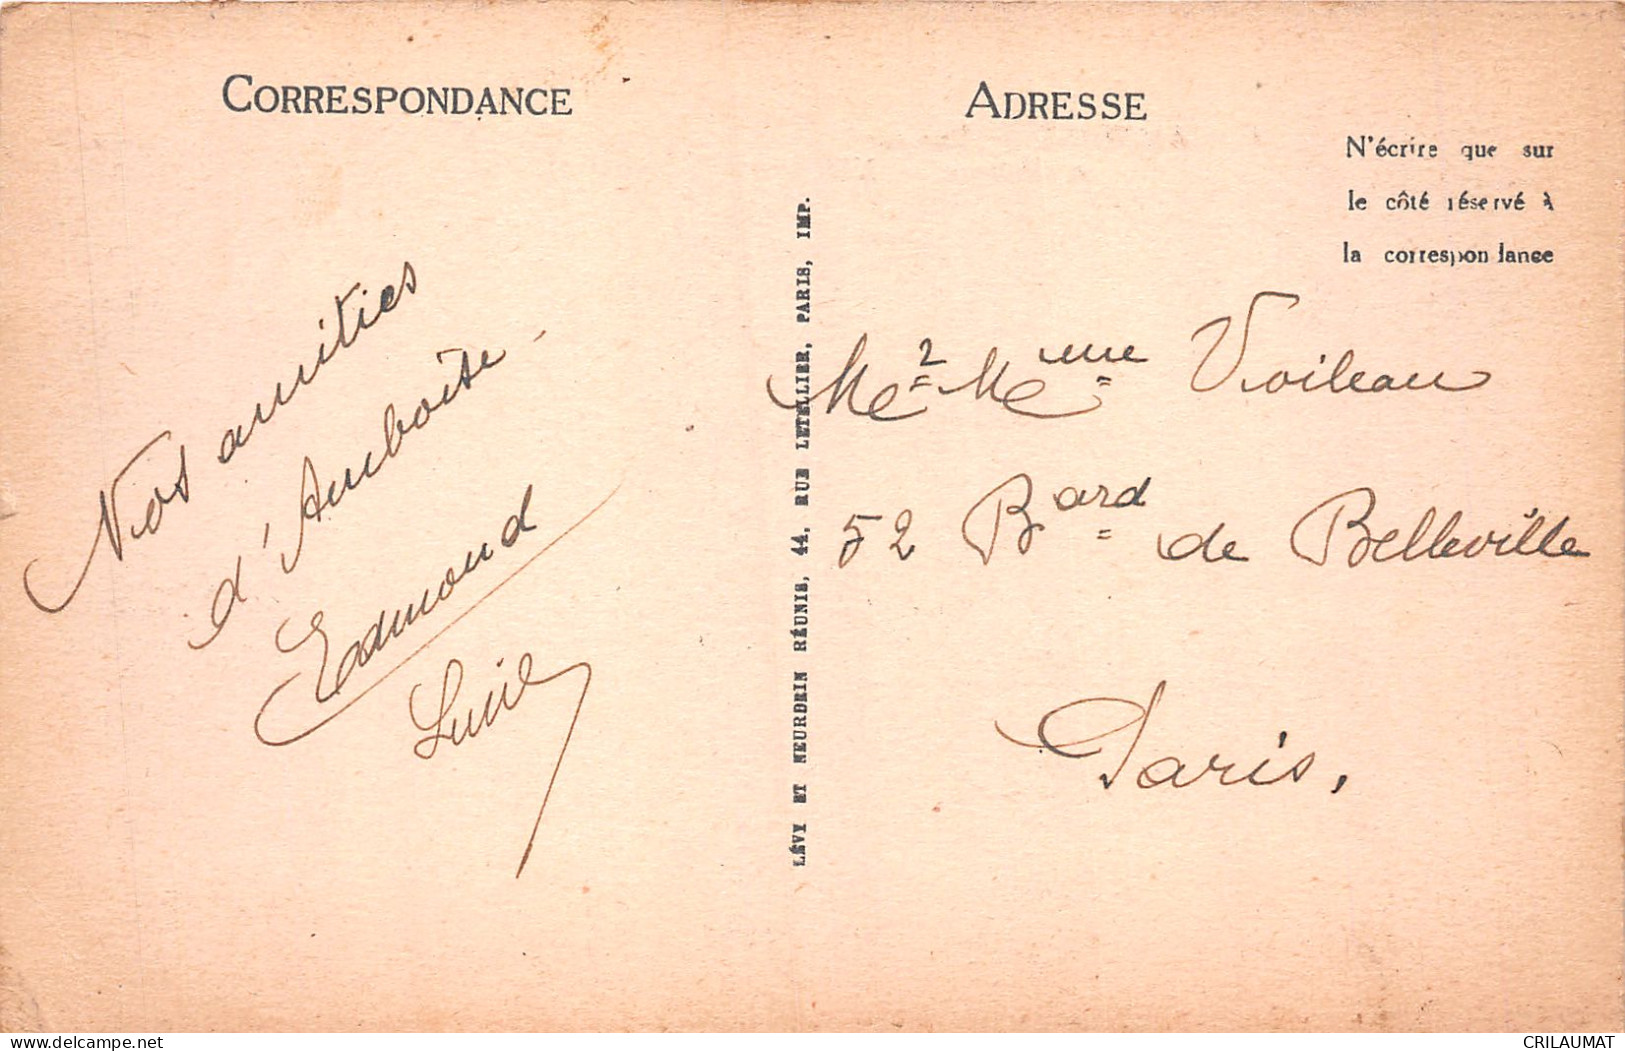 CORRESPONDANCE
Nos amitiés
d'Amboise
Edmond
Lucie
LÉVY ET NEURDEIN RÉUNIS, 44, RUE LETELLIER, PARIS, IMP.
ADRESSE
N'écrire que sur
le côté réservé à
la correspondance
Me & Mme
52 Bard de Belleville
Paris,
delcampe.net
CRILAUMAT